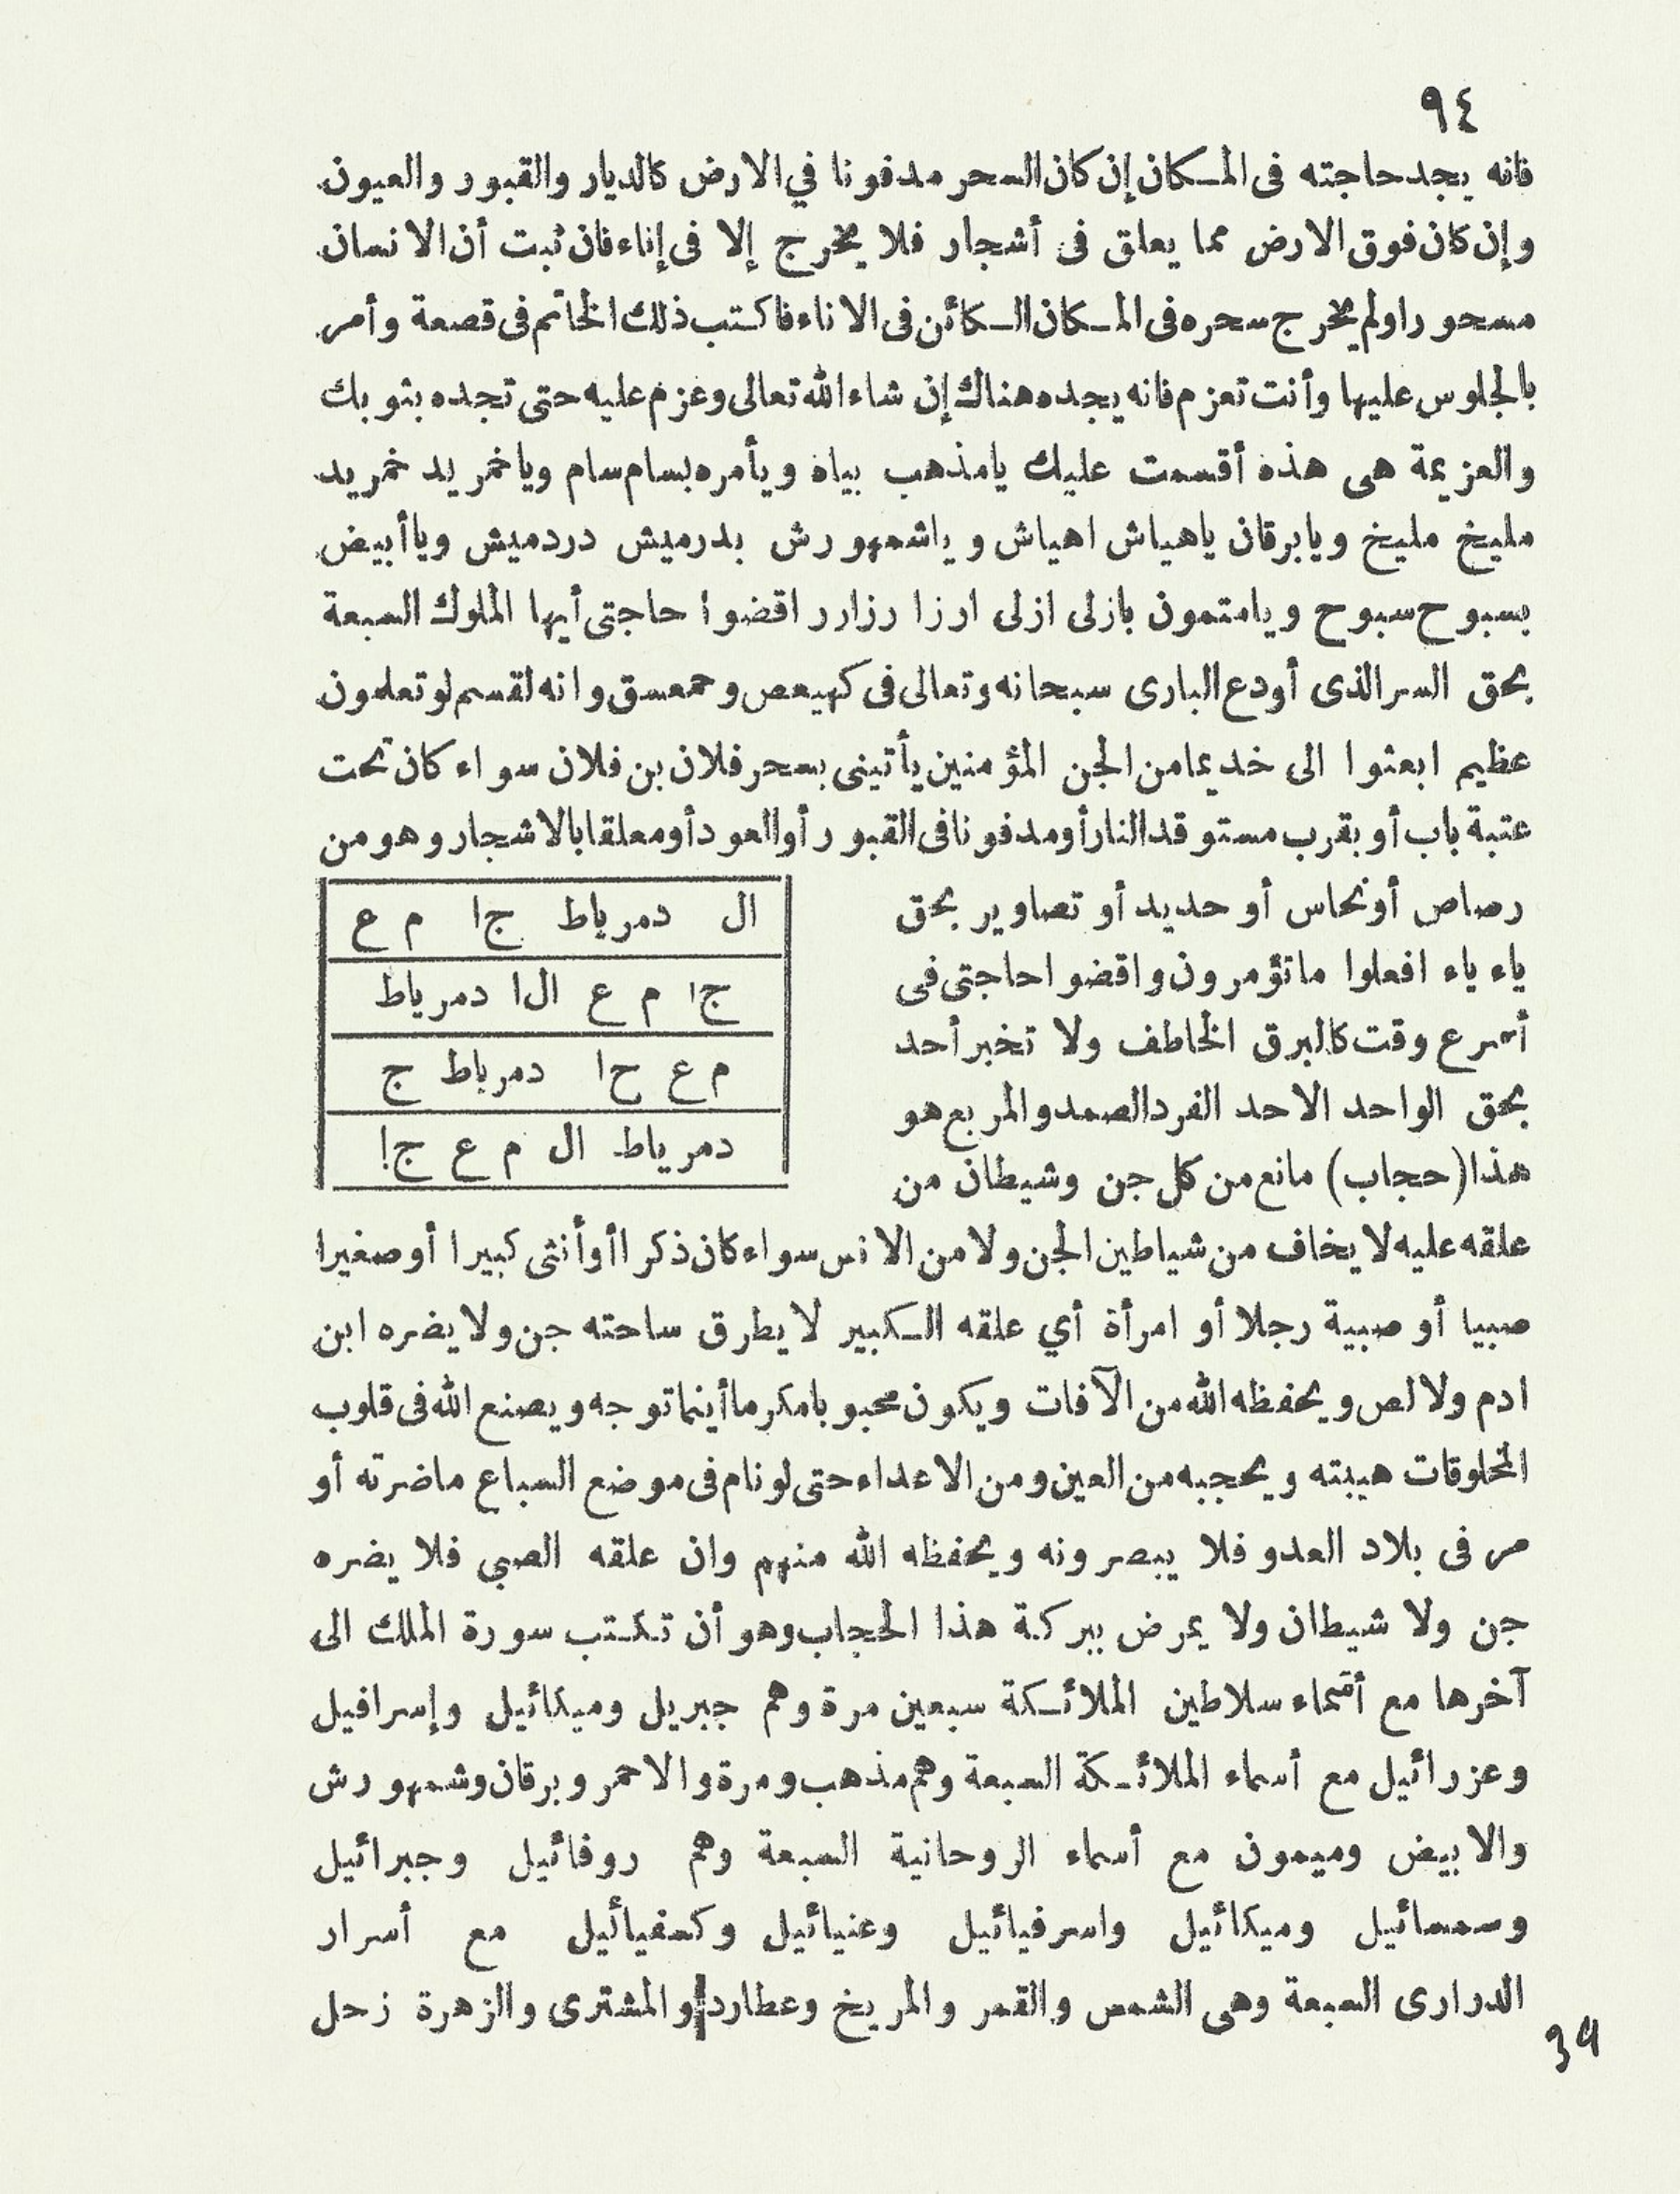 ٩٤
فانه يجد حاجته فى المكان إن كان السحر مدفونا في الارض كالديار والقبور والعيون
وإن كان فوق الارض مما يعلق فى أشجار فلا يخرج إلا فى إناء فان ثبت أن الانسان
مسحورا ولم يخرج سحره فى المكان الكائن فى الاناء فاكتب ذلك الخاتم فى قصعة وأمر
بالجلوس عليها وأنت تعزم فانه يجده هناك إن شاء الله تعالى وعزم عليه حتى تجده بثوبك
والعزيمة هى هذه أقسمت عليك يامذهب بياه ويأمره بسام سام وياخمريد خمريد
مليخ مليخ ويابرقان ياهياش اهياش وياشمهورش بدرميش دردميش وياأبيض
بسبوح سبوح ويامتمون بازلى ازلى ارزا رزارر اقضوا حاجتى أيها الملوك السبعة
بحق السر الذى أودع البارى سبحانه وتعالى فى كهيعص وحمعسق وانه لقسم لو تعلمون
عظيم ابعثوا الى خديما من الجن المؤمنين يأتينى بسحر فلان بن فلان سواء كان تحت
عتبة باب أو بقرب مستوقد النار أو مدفونا فى القبور أو العود أو معلقا بالاشجار وهو من
رصاص أو نحاس أو حديد أو تصاوير بحق
ياء ياء افعلوا ماتؤمرون واقضوا حاجتى فى
أسرع وقت كالبرق الخاطف ولا تخبر أحد
بحق الواحد الاحد الفرد الصمد والمربع هو
هذا (حجاب) مانع من كل جن وشيطان من
ال دمرياط ج ا م ع
ج ا م ع ال ا دمرياط
م ع ح ا دمرياط ج
دمرياط ال م ع ج ا
علقه عليه لا يخاف من شياطين الجن ولا من الانس سواء كان ذكرا أو أنثى كبيرا أو صغيرا
صبيا أو صبية رجلا أو امرأة أي علقه الكبير لا يطرق ساحته جن ولا يضره ابن
ادم ولا لص ويحفظه الله من الآفات ويكون محبوبا مكرما أينما توجه ويصنع الله فى قلوب
المخلوقات هيبته ويحجبه من العين ومن الاعداء حتى لو نام فى موضع السباع ماضرته أو
مر فى بلاد العدو فلا يبصرونه ويحفظه الله منهم وان علقه الصبي فلا يضره
جن ولا شيطان ولا يمرض ببركة هذا الحجاب وهو أن تكتب سورة الملك الى
آخرها مع أسماء سلاطين الملائكة سبعين مرة وهم جبريل وميكائيل وإسرافيل
وعزرائيل مع أسماء الملائكة السبعة وهم مذهب ومرة والاحمر وبرقان وشمهورش
والابيض وميمون مع أسماء الروحانية السبعة وهم روفائيل وجبرائيل
وسمسائيل وميكائيل واسرفيائيل وعنيائيل وكسفيأئيل مع أسرار
الدرارى السبعة وهى الشمس والقمر والمريخ وعطارد والمشترى والزهرة زحل